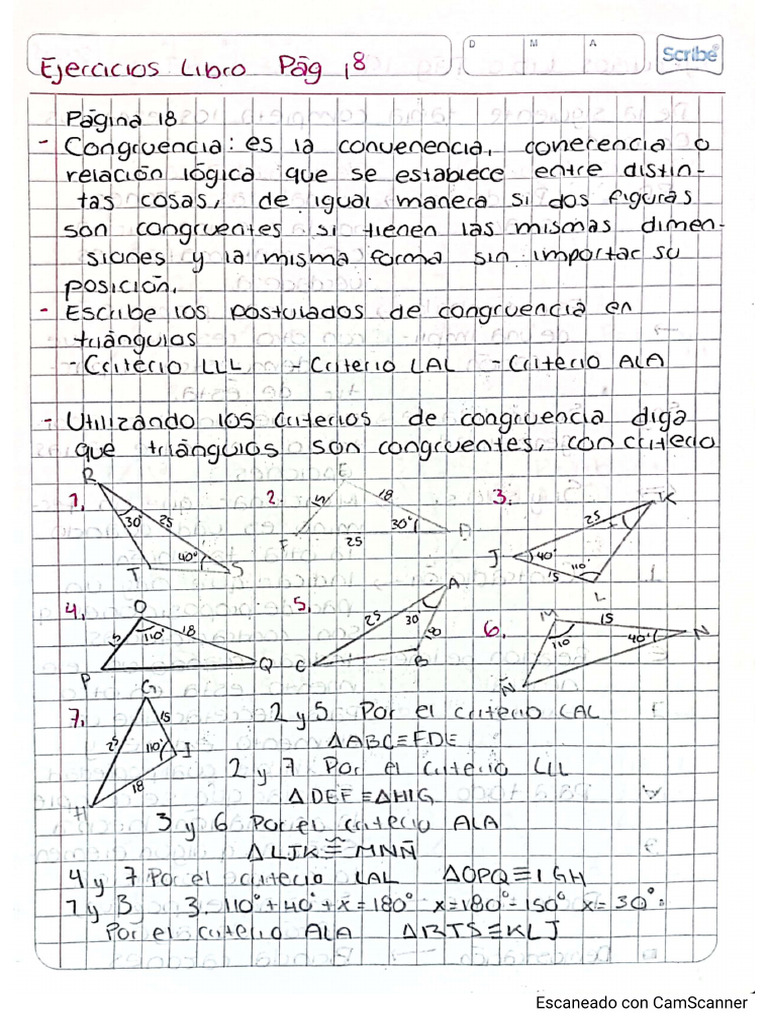 Ejercicios Libro Pág 18
D M A
Scribe
Página 18
- Congruencia: es la convenencia, conerencia o
relación lógica que se establece entre distin-
tas cosas, de igual manera si dos figuras
son congruentes si tienen las mismas dimen-
siones y la misma forma sin importar su
posición.
- Escribe los postulados de congruencia en
triángulos
- Criterio LLL - Criterio LAL - Criterio ALA
- Utilizando los criterios de congruencia diga
que triángulos son congruentes, con criterio
1. R 30° 25 40° T S
2. E 15 18 30° F 25 D
3. K 25 J 40° 110° 15 L
4. O 15 110° 18 P Q
5. A 25 30° 18 C B
6. M 15 N 110° 40° Ñ
7. G 15 25 110° I 18 H
2 y 5 Por el criterio LAL
△ABC≡FDE
2 y 7 Por el criterio LLL
△DEF≡△HIG
3 y 6 Por el criterio ALA
△LJK≅MNÑ
4 y 7 Por el criterio LAL △OPQ≡IGH
1 y 3 3. 110°+40°+x=180° x=180°-150° x=30°
Por el criterio ALA △RTS≡KLJ
Escaneado con CamScanner